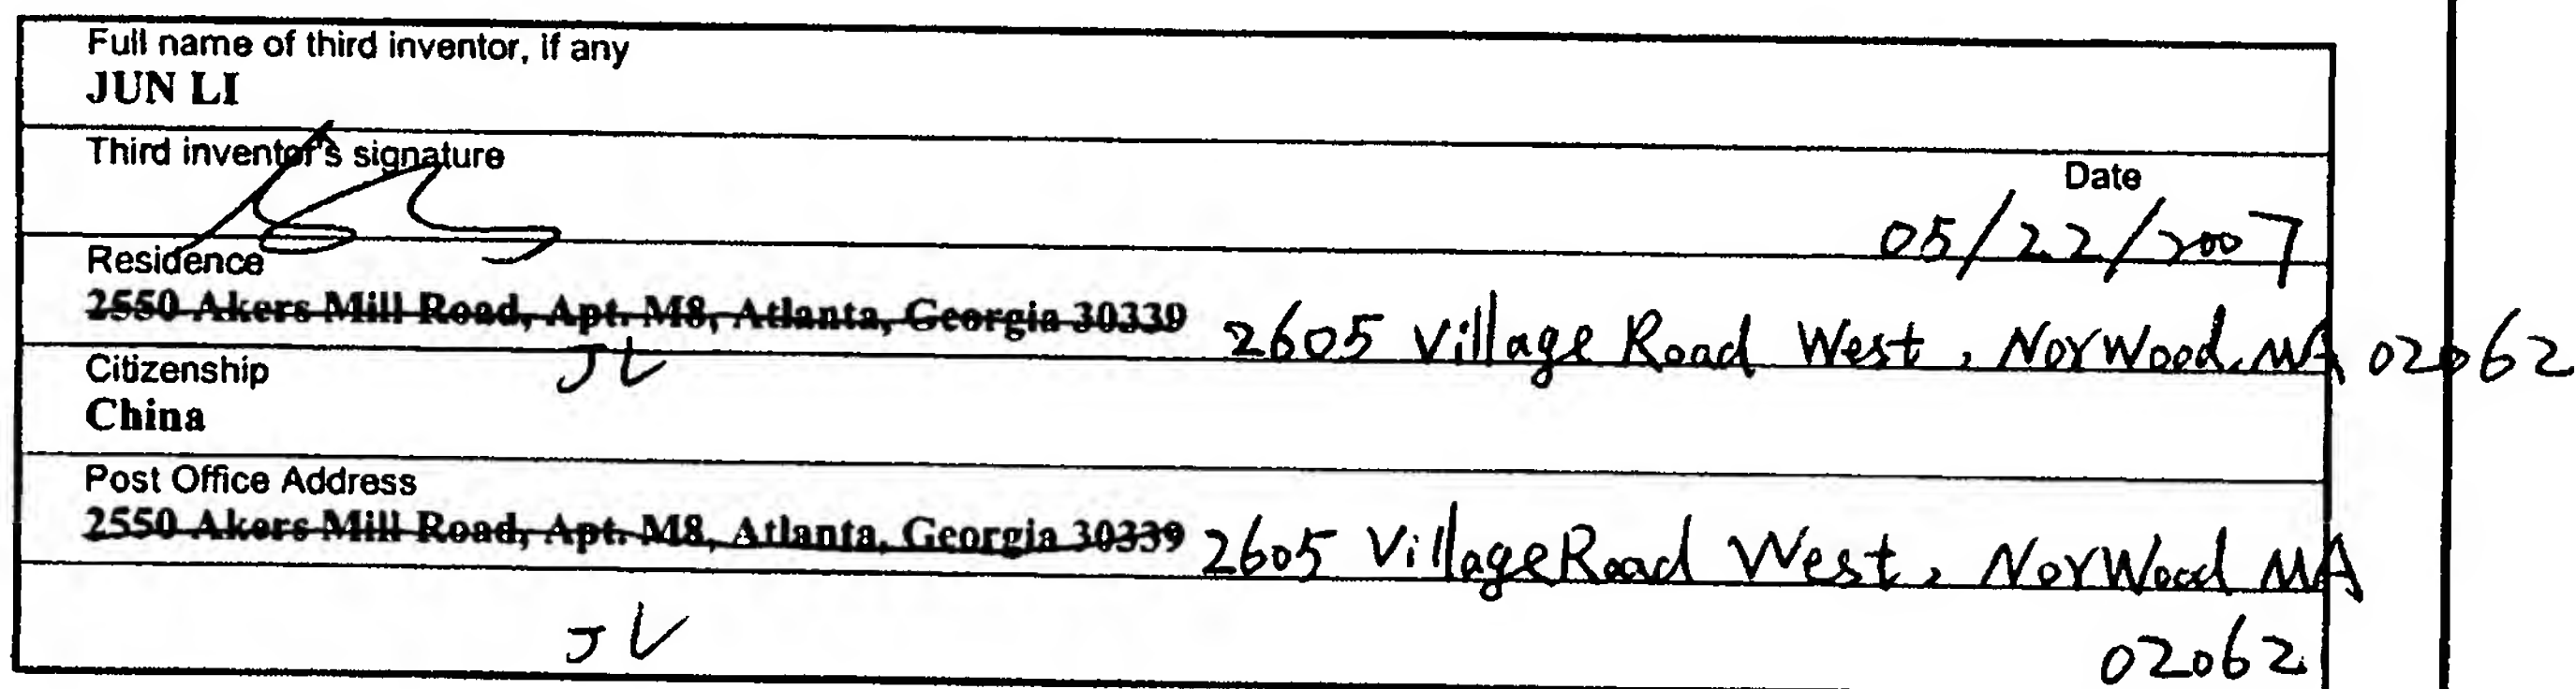 Full name of third inventor, if any
JUN LI
Third inventor's signature
Date
05/22/2007
Residence
2550 Akers Mill Road, Apt. M8, Atlanta, Georgia 30339 2605 Village Road West, Norwood, MA 02062
JL
Citizenship
China
Post Office Address
2550 Akers Mill Road, Apt. M8, Atlanta, Georgia 30339 2605 Village Road West, Norwood MA
JL 02062